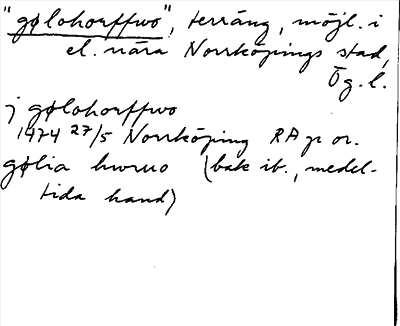 "gølohorffwo", terräng, möjl. i
el. nära Norrköpings stad,
Ög. l.
j gølohorffwo
1474 27/5 Norrköping RA p or.
gølia hwruo (bak ib., medel-
tida hand)